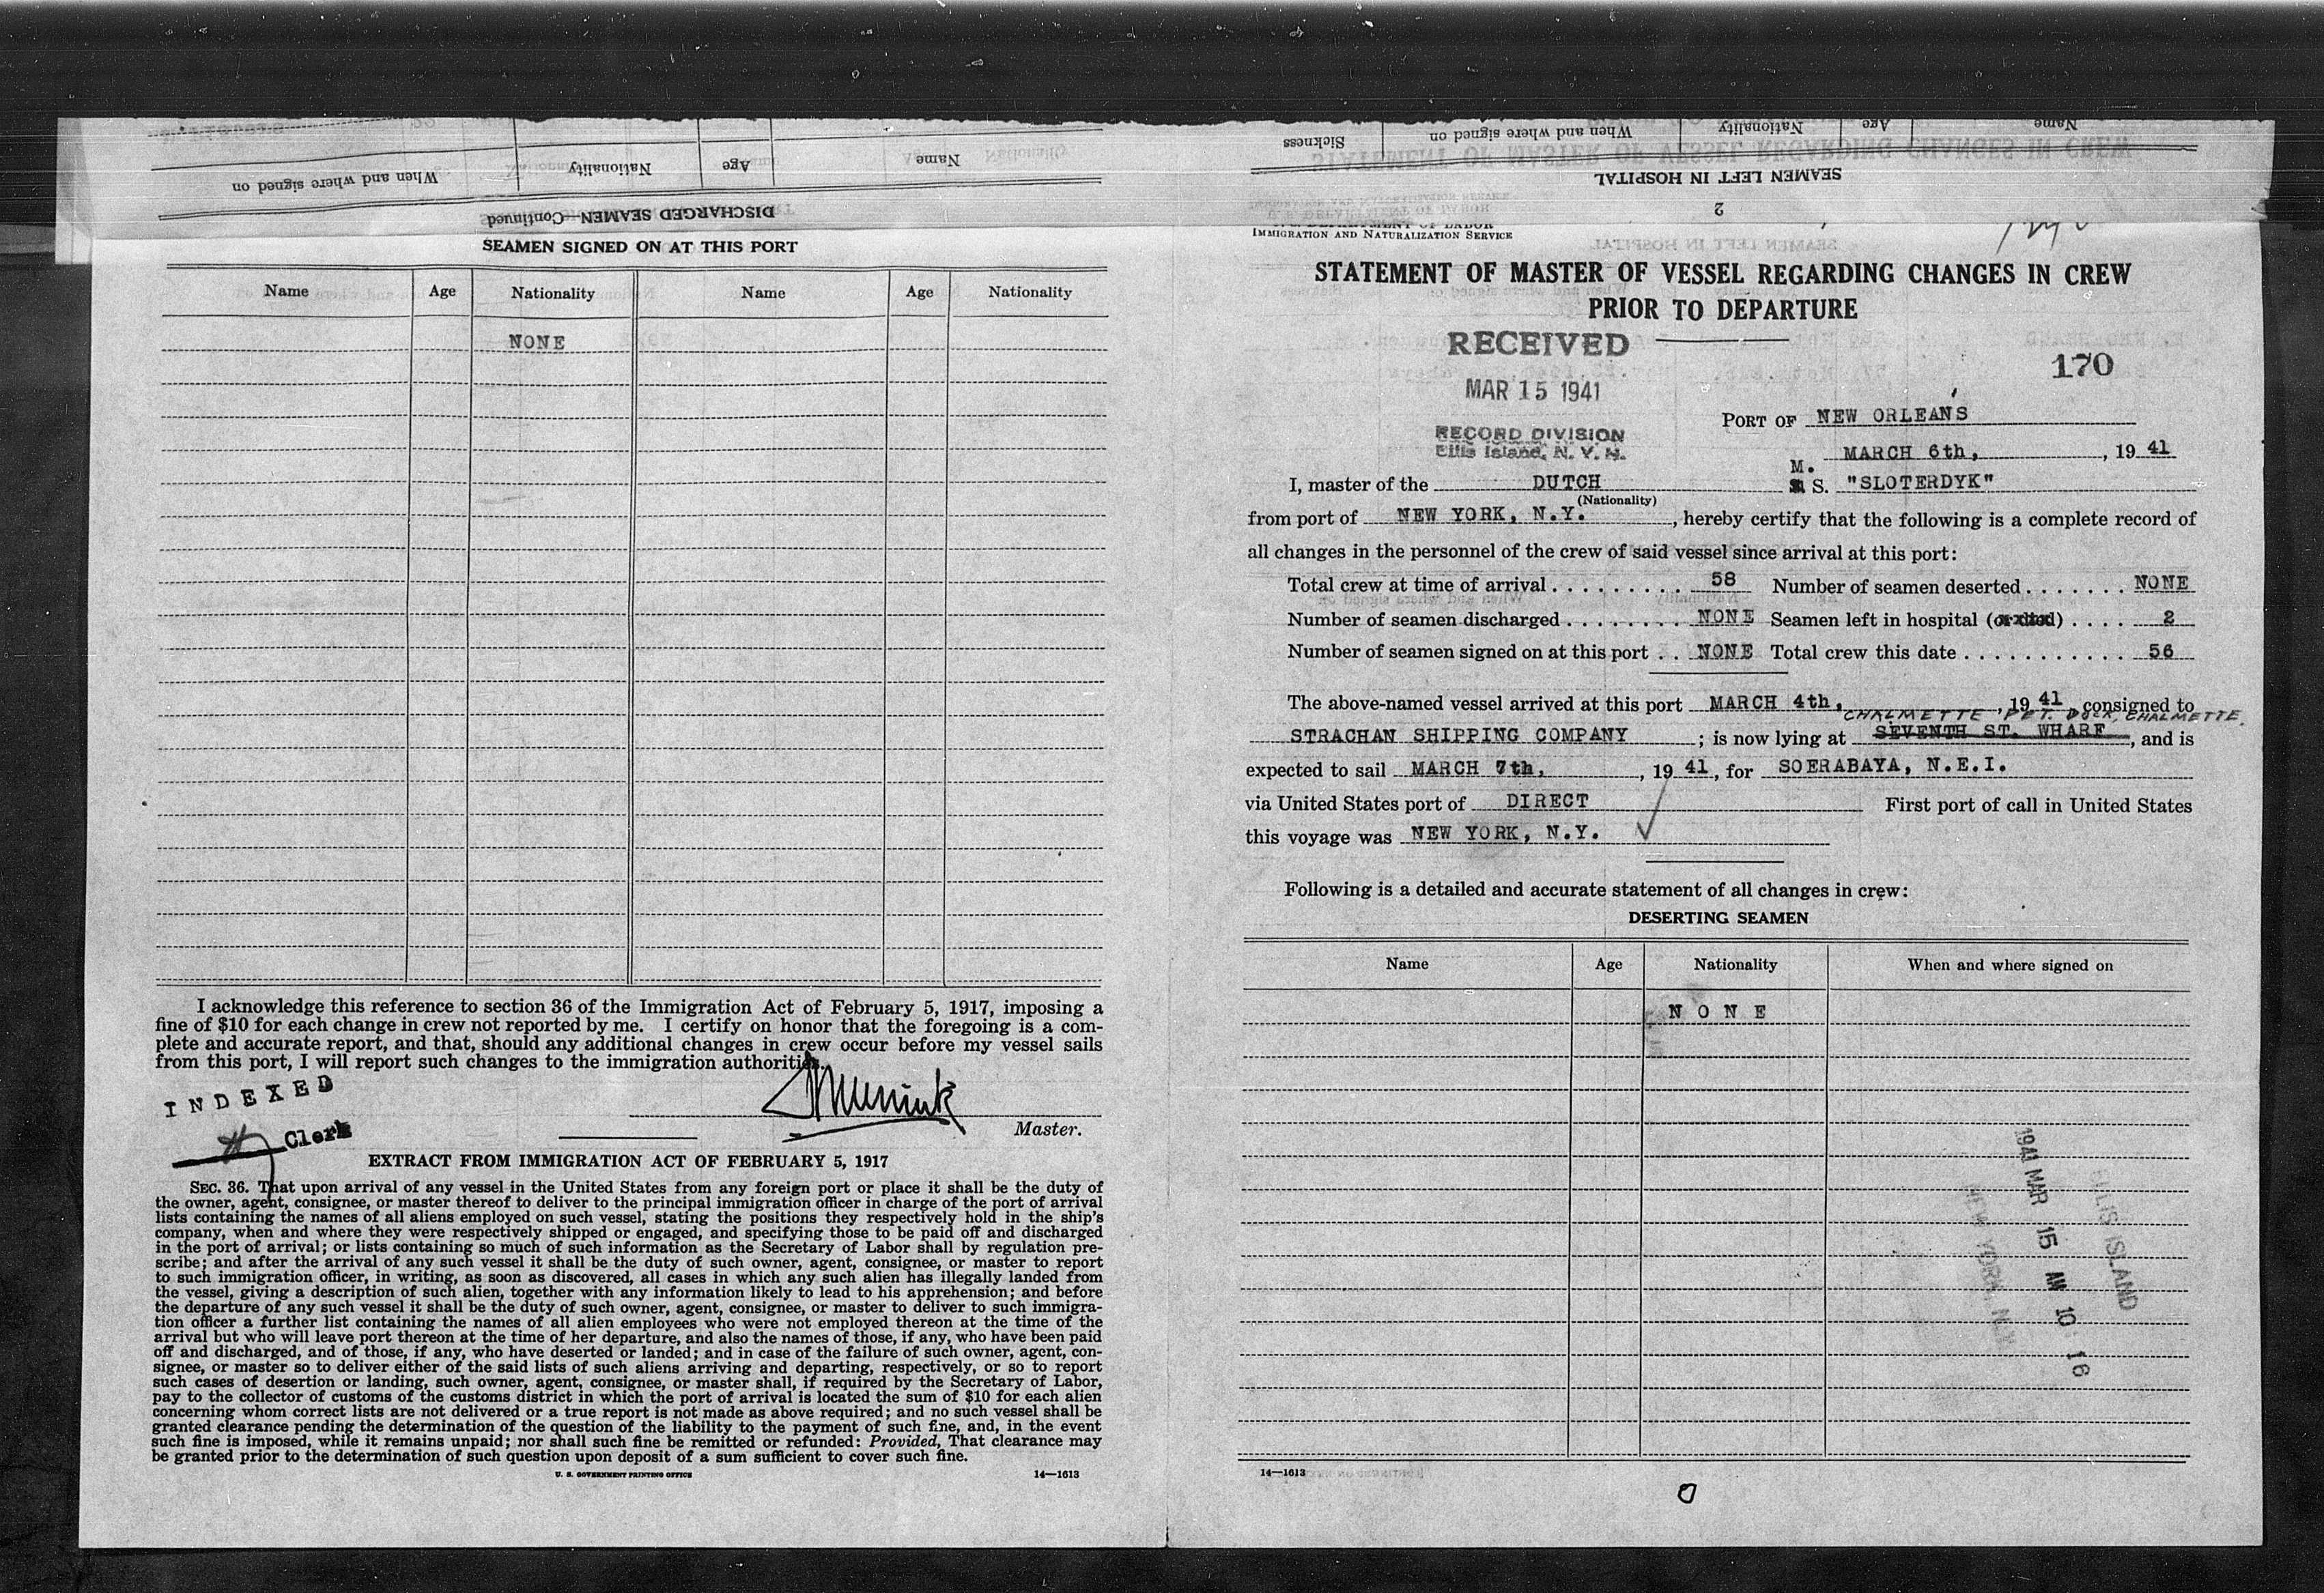 When and where signed on Nationality Age Name
DISCHARGED SEAMEN—Continued
SEAMEN SIGNED ON AT THIS PORT
Name Age Nationality Name Age Nationality
NONE
I acknowledge this reference to section 36 of the Immigration Act of February 5, 1917, imposing a
fine of $10 for each change in crew not reported by me. I certify on honor that the foregoing is a com-
plete and accurate report, and that, should any additional changes in crew occur before my vessel sails
from this port, I will report such changes to the immigration authorities.
INDEXED
Clerk
Master.
EXTRACT FROM IMMIGRATION ACT OF FEBRUARY 5, 1917
SEC. 36. That upon arrival of any vessel in the United States from any foreign port or place it shall be the duty of
the owner, agent, consignee, or master thereof to deliver to the principal immigration officer in charge of the port of arrival
lists containing the names of all aliens employed on such vessel, stating the positions they respectively hold in the ship's
company, when and where they were respectively shipped or engaged, and specifying those to be paid off and discharged
in the port of arrival; or lists containing so much of such information as the Secretary of Labor shall by regulation pre-
scribe; and after the arrival of any such vessel it shall be the duty of such owner, agent, consignee, or master to report
to such immigration officer, in writing, as soon as discovered, all cases in which any such alien has illegally landed from
the vessel, giving a description of such alien, together with any information likely to lead to his apprehension; and before
the departure of any such vessel it shall be the duty of such owner, agent, consignee, or master to deliver to such immigra-
tion officer a further list containing the names of all alien employees who were not employed thereon at the time of the
arrival but who will leave port thereon at the time of her departure, and also the names of those, if any, who have been paid
off and discharged, and of those, if any, who have deserted or landed; and in case of the failure of such owner, agent, con-
signee, or master so to deliver either of the said lists of such aliens arriving and departing, respectively, or so to report
such cases of desertion or landing, such owner, agent, consignee, or master shall, if required by the Secretary of Labor,
pay to the collector of customs of the customs district in which the port of arrival is located the sum of $10 for each alien
concerning whom correct lists are not delivered or a true report is not made as above required; and no such vessel shall be
granted clearance pending the determination of the question of the liability to the payment of such fine, and, in the event
such fine is imposed, while it remains unpaid; nor shall such fine be remitted or refunded: Provided, That clearance may
be granted prior to the determination of such question upon deposit of a sum sufficient to cover such fine.
U. S. GOVERNMENT PRINTING OFFICE 14—1613
Sickness When and where signed on Nationality Age Name
SEAMEN LEFT IN HOSPITAL
2
U. S. DEPARTMENT OF LABOR
IMMIGRATION AND NATURALIZATION SERVICE
STATEMENT OF MASTER OF VESSEL REGARDING CHANGES IN CREW
PRIOR TO DEPARTURE
RECEIVED
MAR 15 1941
RECORD DIVISION
Ellis Island, N. Y. H.
170
PORT OF NEW ORLEANS
MARCH 6th, , 19 41
I, master of the DUTCH M. S. "SLOTERDYK"
(Nationality)
from port of NEW YORK, N.Y. , hereby certify that the following is a complete record of
all changes in the personnel of the crew of said vessel since arrival at this port:
Total crew at time of arrival . . . . . . . . . 58 Number of seamen deserted . . . . . . . NONE
Number of seamen discharged . . . . . . . . NONE Seamen left in hospital (or died) . . . . 2
Number of seamen signed on at this port . . NONE Total crew this date . . . . . . . . . . . 56
The above-named vessel arrived at this port MARCH 4th, , 19 41 , consigned to
CHALMETTE PET. DOCK, CHALMETTE.
STRACHAN SHIPPING COMPANY ; is now lying at SEVENTH ST. WHARF , and is
expected to sail MARCH 7th, , 19 41 , for SOERABAYA, N.E.I.
via United States port of DIRECT First port of call in United States
this voyage was NEW YORK, N.Y.
Following is a detailed and accurate statement of all changes in crew:
DESERTING SEAMEN
Name Age Nationality When and where signed on
N O N E
1941 MAR 15 AM 10 16
ELLIS ISLAND
NEW YORK, N.Y.
14—1613